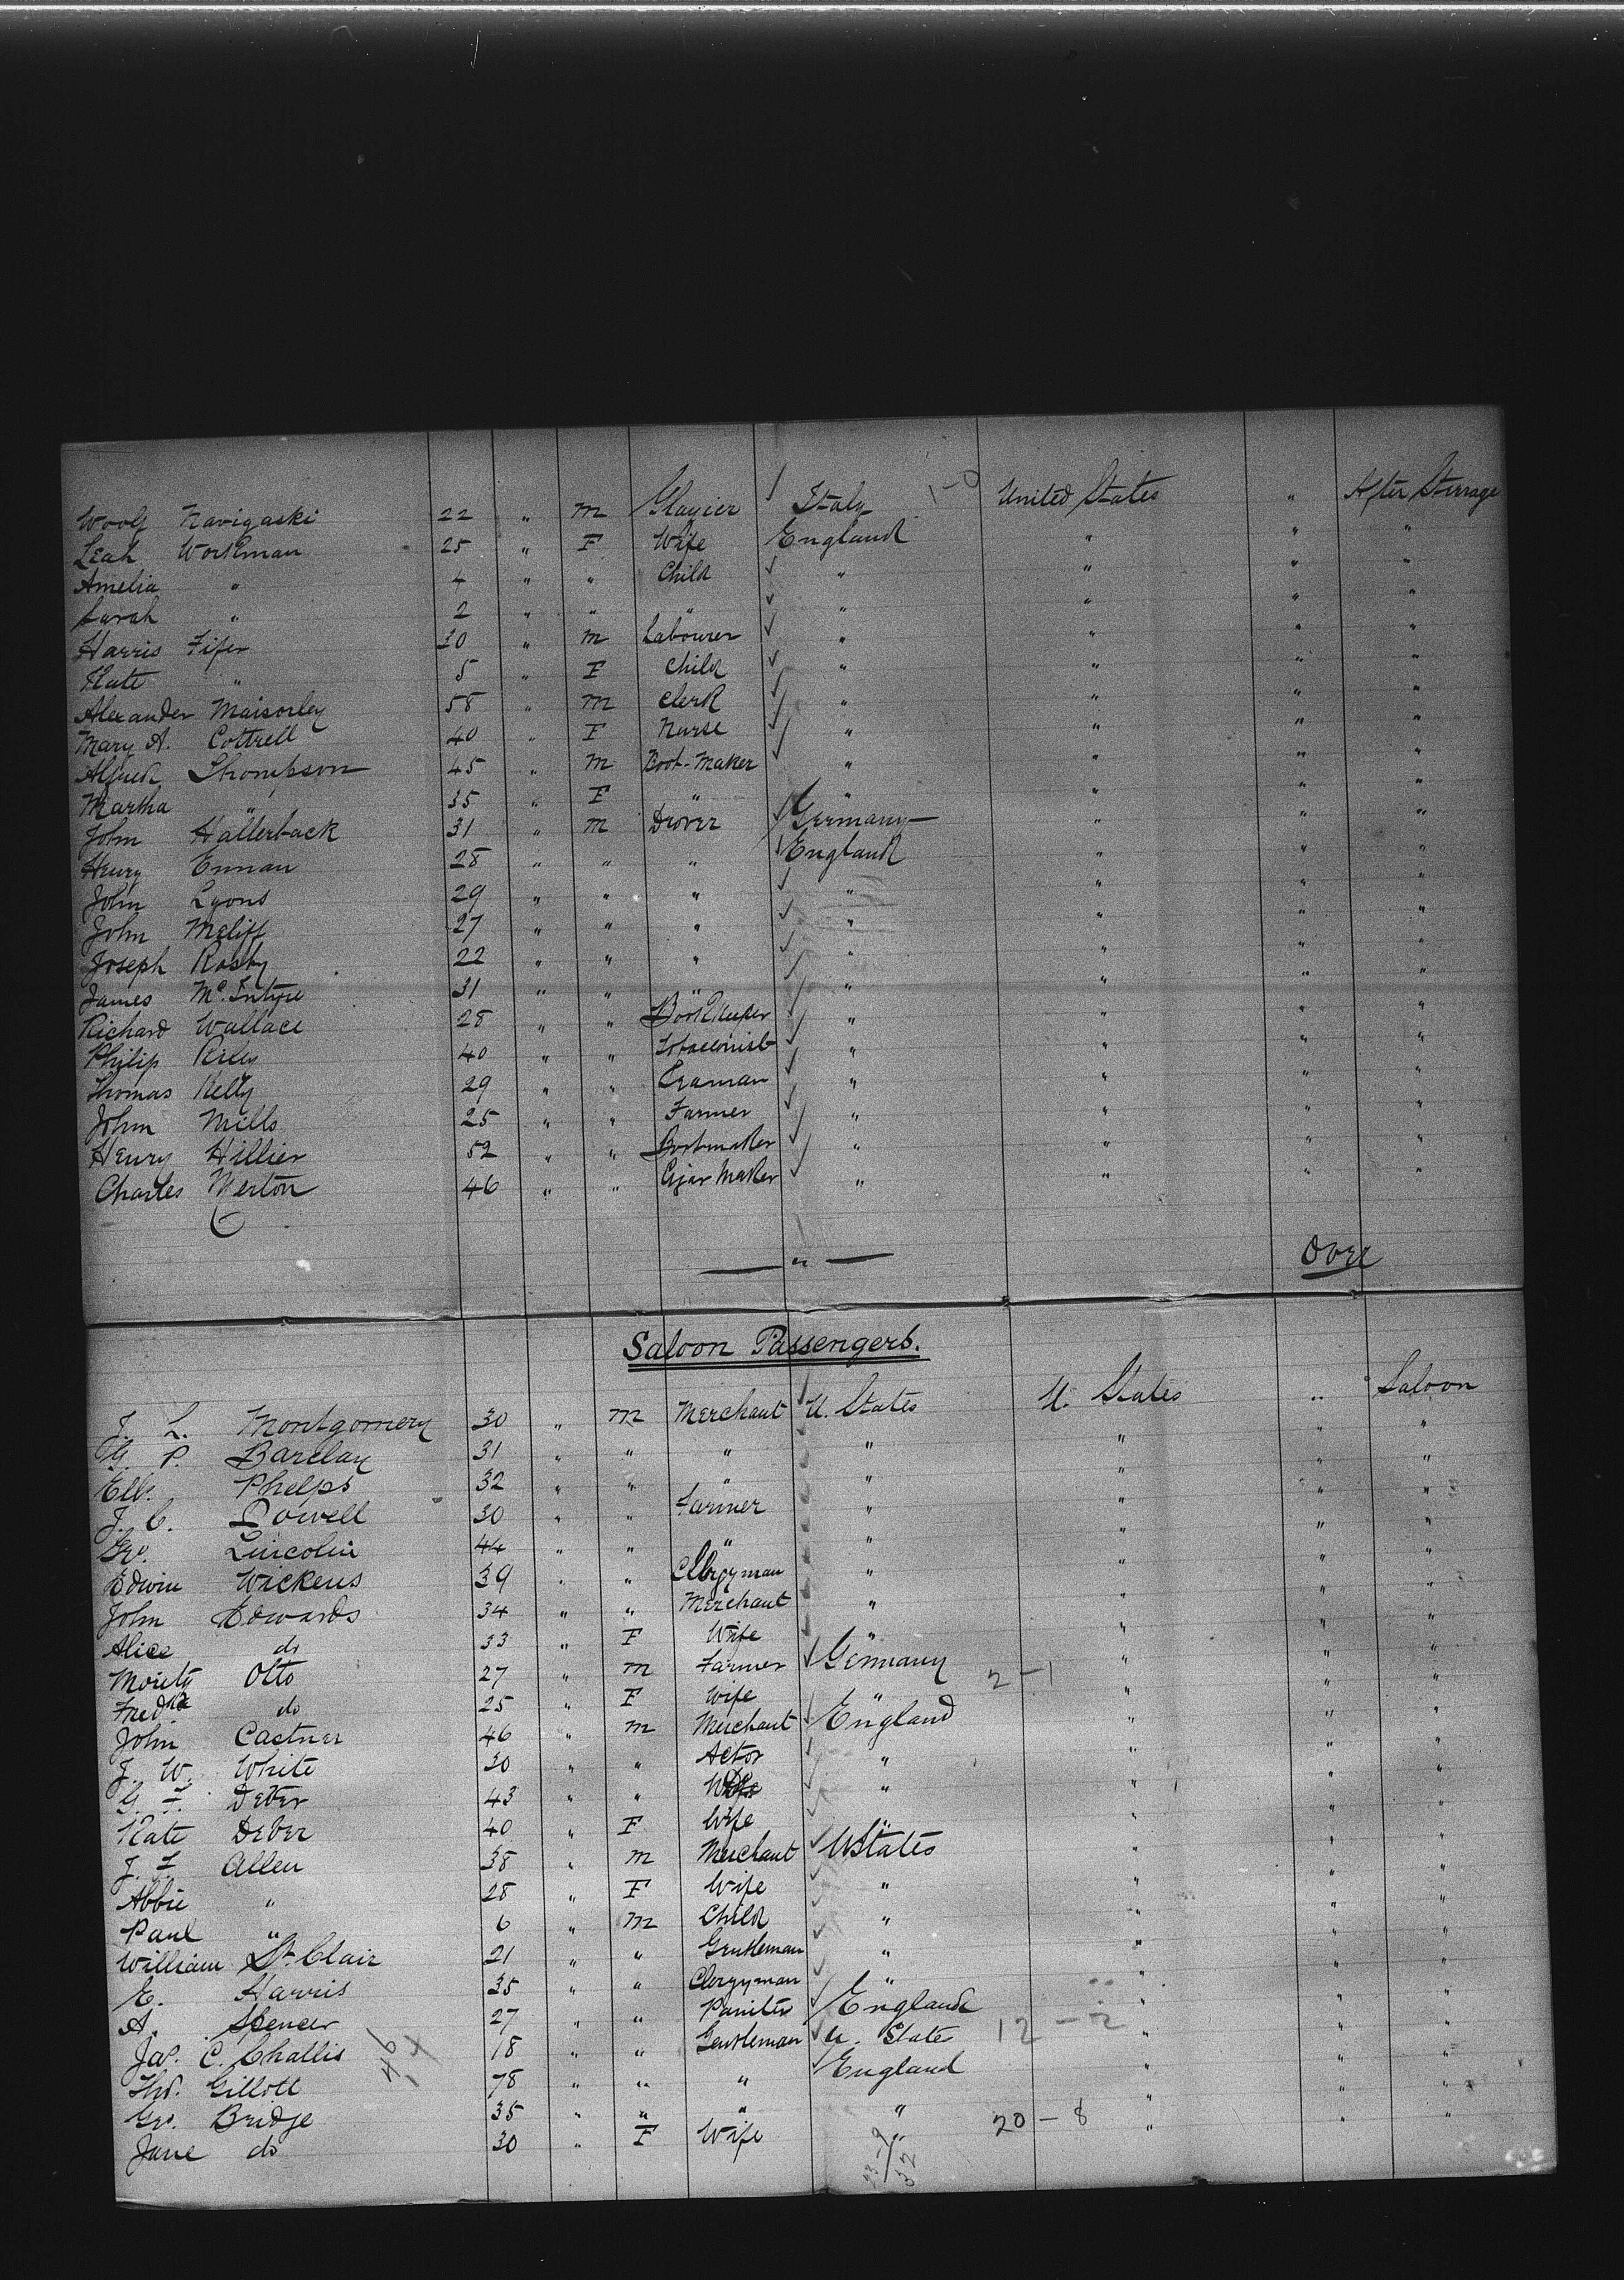 Woolf Navigaski 22 " M Glazier ✓ Italy 1-0 United States " After Steerage
Leah Workman 25 " F Wife England " " "
Amelia " 4 " " Child ✓ " " " "
Sarah " 2 " " " ✓ " " " "
Harris Fifer 30 " M Labourer ✓ " " " "
Kate " 5 " F Child ✓ " " " "
Alexander Maisorley 58 " M Clerk ✓ " " " "
Mary A. Cottrell 40 " F Nurse ✓ " " " "
Alfred Thompson 45 " M Boot-Maker ✓ " " " "
Martha " 35 " F " " " " "
John Hallerback 31 " M Drover ✓ Germany " " "
Henry Ennan 28 " " " ✓ England " " "
John Lyons 29 " " " ✓ " " " "
John Meliff 27 " " " ✓ " " " "
Joseph Rosby 22 " " " ✓ " " " "
James Mc.Intyre 31 " " " ✓ " " " "
Richard Wallace 28 " " BookKeeper ✓ " " " "
Philip Riley 40 " " Tobacconist ✓ " " " "
Thomas Kelly 29 " " Seaman ✓ " " " "
John Mills 25 " " Farmer ✓ " " " "
Henry Hillier 52 " " Bootmaker ✓ " " " "
Charles Merton 46 " " Cigar Maker ✓ " " " "
— " —
Over
Saloon Passengers.
J. L. Montgomery 30 " M Merchant ✓ U. States U. States " Saloon
G. P. Barclay 31 " " " " " " "
Ellis. Phelps 32 " " " " " " "
J. C. Powell 30 " " Farmer " " " "
Geo. Lincoln 44 " " " " " " "
Edwin Wickens 39 " " Clergyman " " " "
John Edwards 34 " " Merchant " " " "
Alice do 33 " F Wife " " " "
Moritz Otto 27 " M Farmer ✓ Germany 2-1 " " "
Fredka do 25 " F Wife " " " "
John Castner 46 " M Merchant ✓ England " " "
J. W. White 30 " " Actor ✓ " " " "
G. F. Dever 43 " " ✓ " " " "
Kate Dever 40 " F Wife " " " "
J. F. Allen 38 " M Merchant ✓ UStates " " "
Abbie " 28 " F Wife ✓ " " " "
Paul " 6 " M Child ✓ " " " "
William St. Clair 21 " " Gentleman ✓ " " " "
E. Harris 35 " " Clergyman ✓ " " " "
A. Spencer 27 " " Painter ✓ England " " "
Jas. C. Challis 18 " " Gentleman ✓ U. States 12-2 " " "
Thos. Gillott 78 " " " ✓ England " " "
Geo. Bridge 35 " " " " " " "
Jane do 30 " F Wife " 20-8 " " "
46
14
32